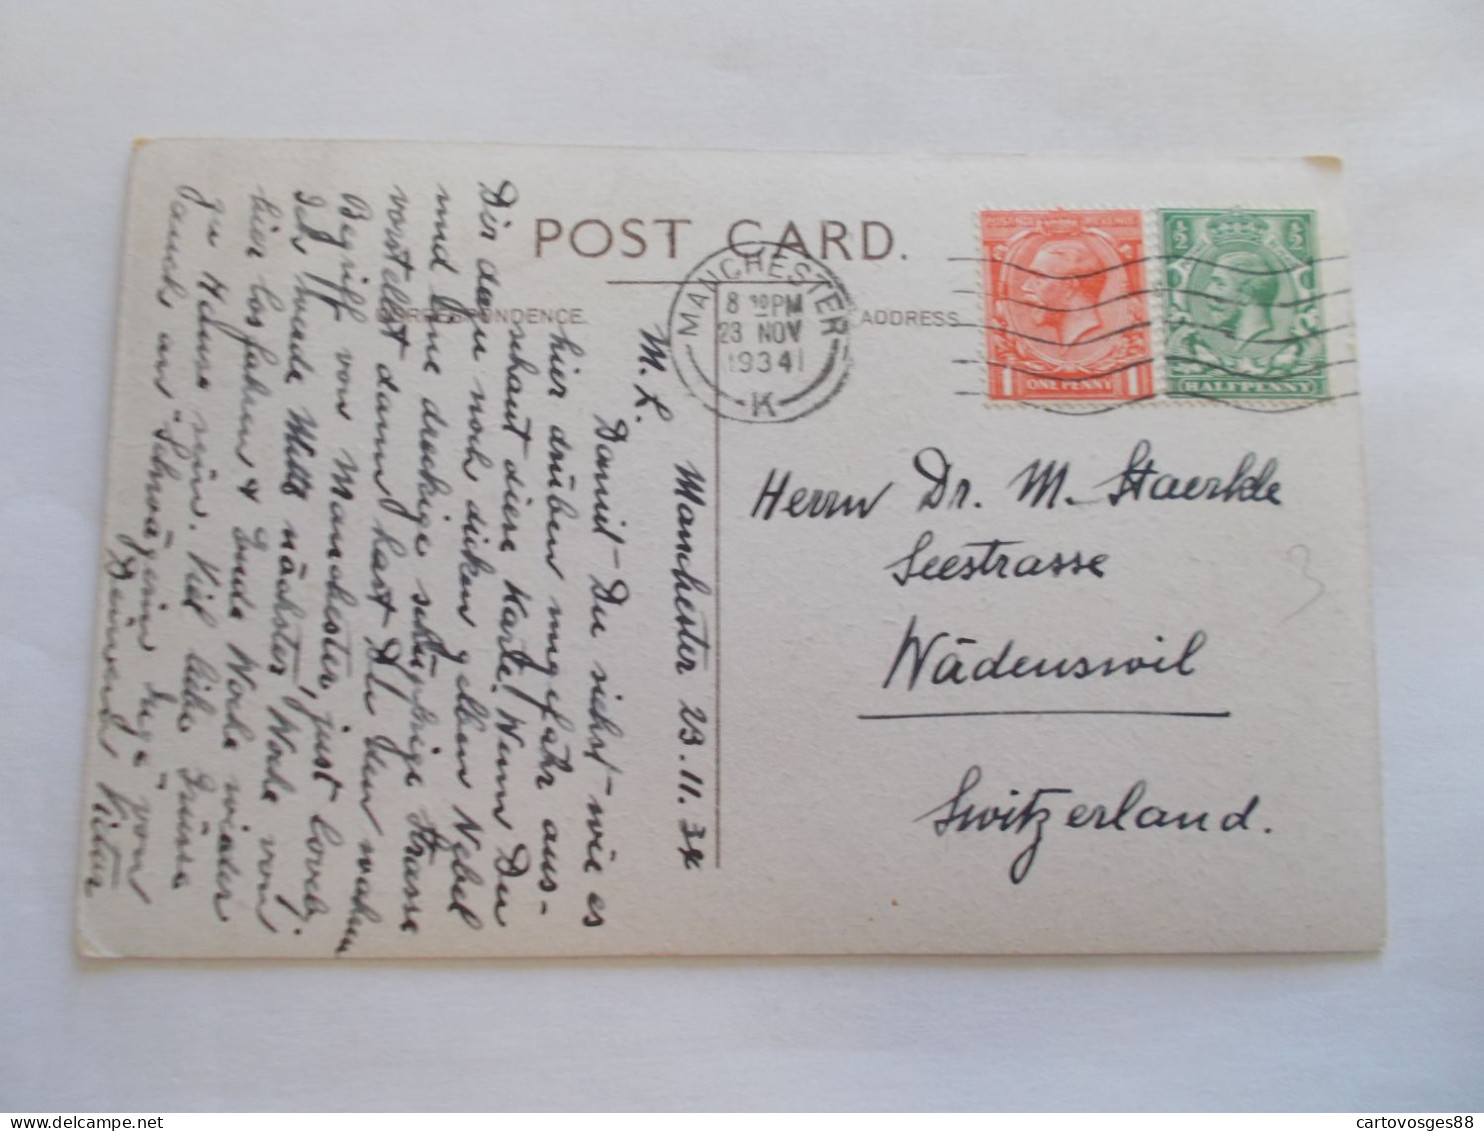 POST CARD.
CORRESPONDENCE.
ADDRESS
MANCHESTER
8 30 PM
23 NOV
1934
K
ONE PENNY
1 1
HALFPENNY
½ ½
Manchester 23. 11. 34
M. L.
Damit Du siehst wie es
hier drüben ungefähr aus-
schaut diese Karte. Wenn Du
Dir dazu noch dicken gelben Nebel
und eine dreckige Strasse
vorstellst dann hast Du den wahren
Begriff von Manchester, just lovely.
Ich werde Mitte nächster Woche von
hier losfahren & Ende Woche wieder
zu Hause sein. Viel liebe Grüsse
auch an Schwägerin Inge von
Deinem Victor
Herrn Dr. M. Staerkle
Seestrasse
Wädenswil
Switzerland.
3
cartovosges88